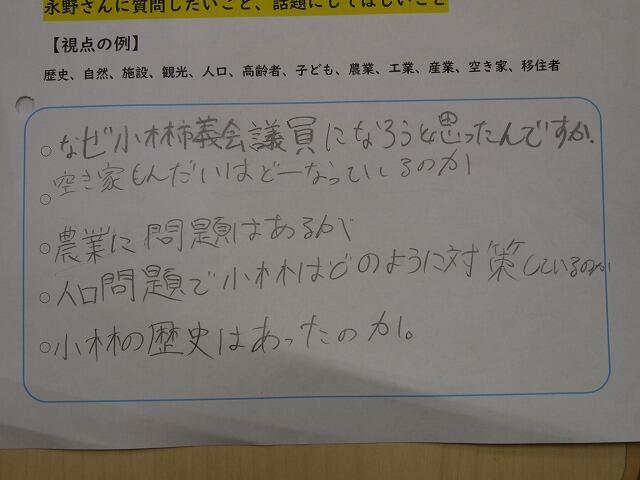 永野さんに質問したいこと、話題にしてほしいこと
【視点の例】
歴史、自然、施設、観光、人口、高齢者、子ども、農業、工業、産業、空き家、移住者
○なぜ小林市義会議員になろうと思ったんですか.
空き家もんだいはどーなっているのか
○
○農業に問題はあるか
○人口問題で小林はどのように対策しているのか
○小林の歴史はあったのか。